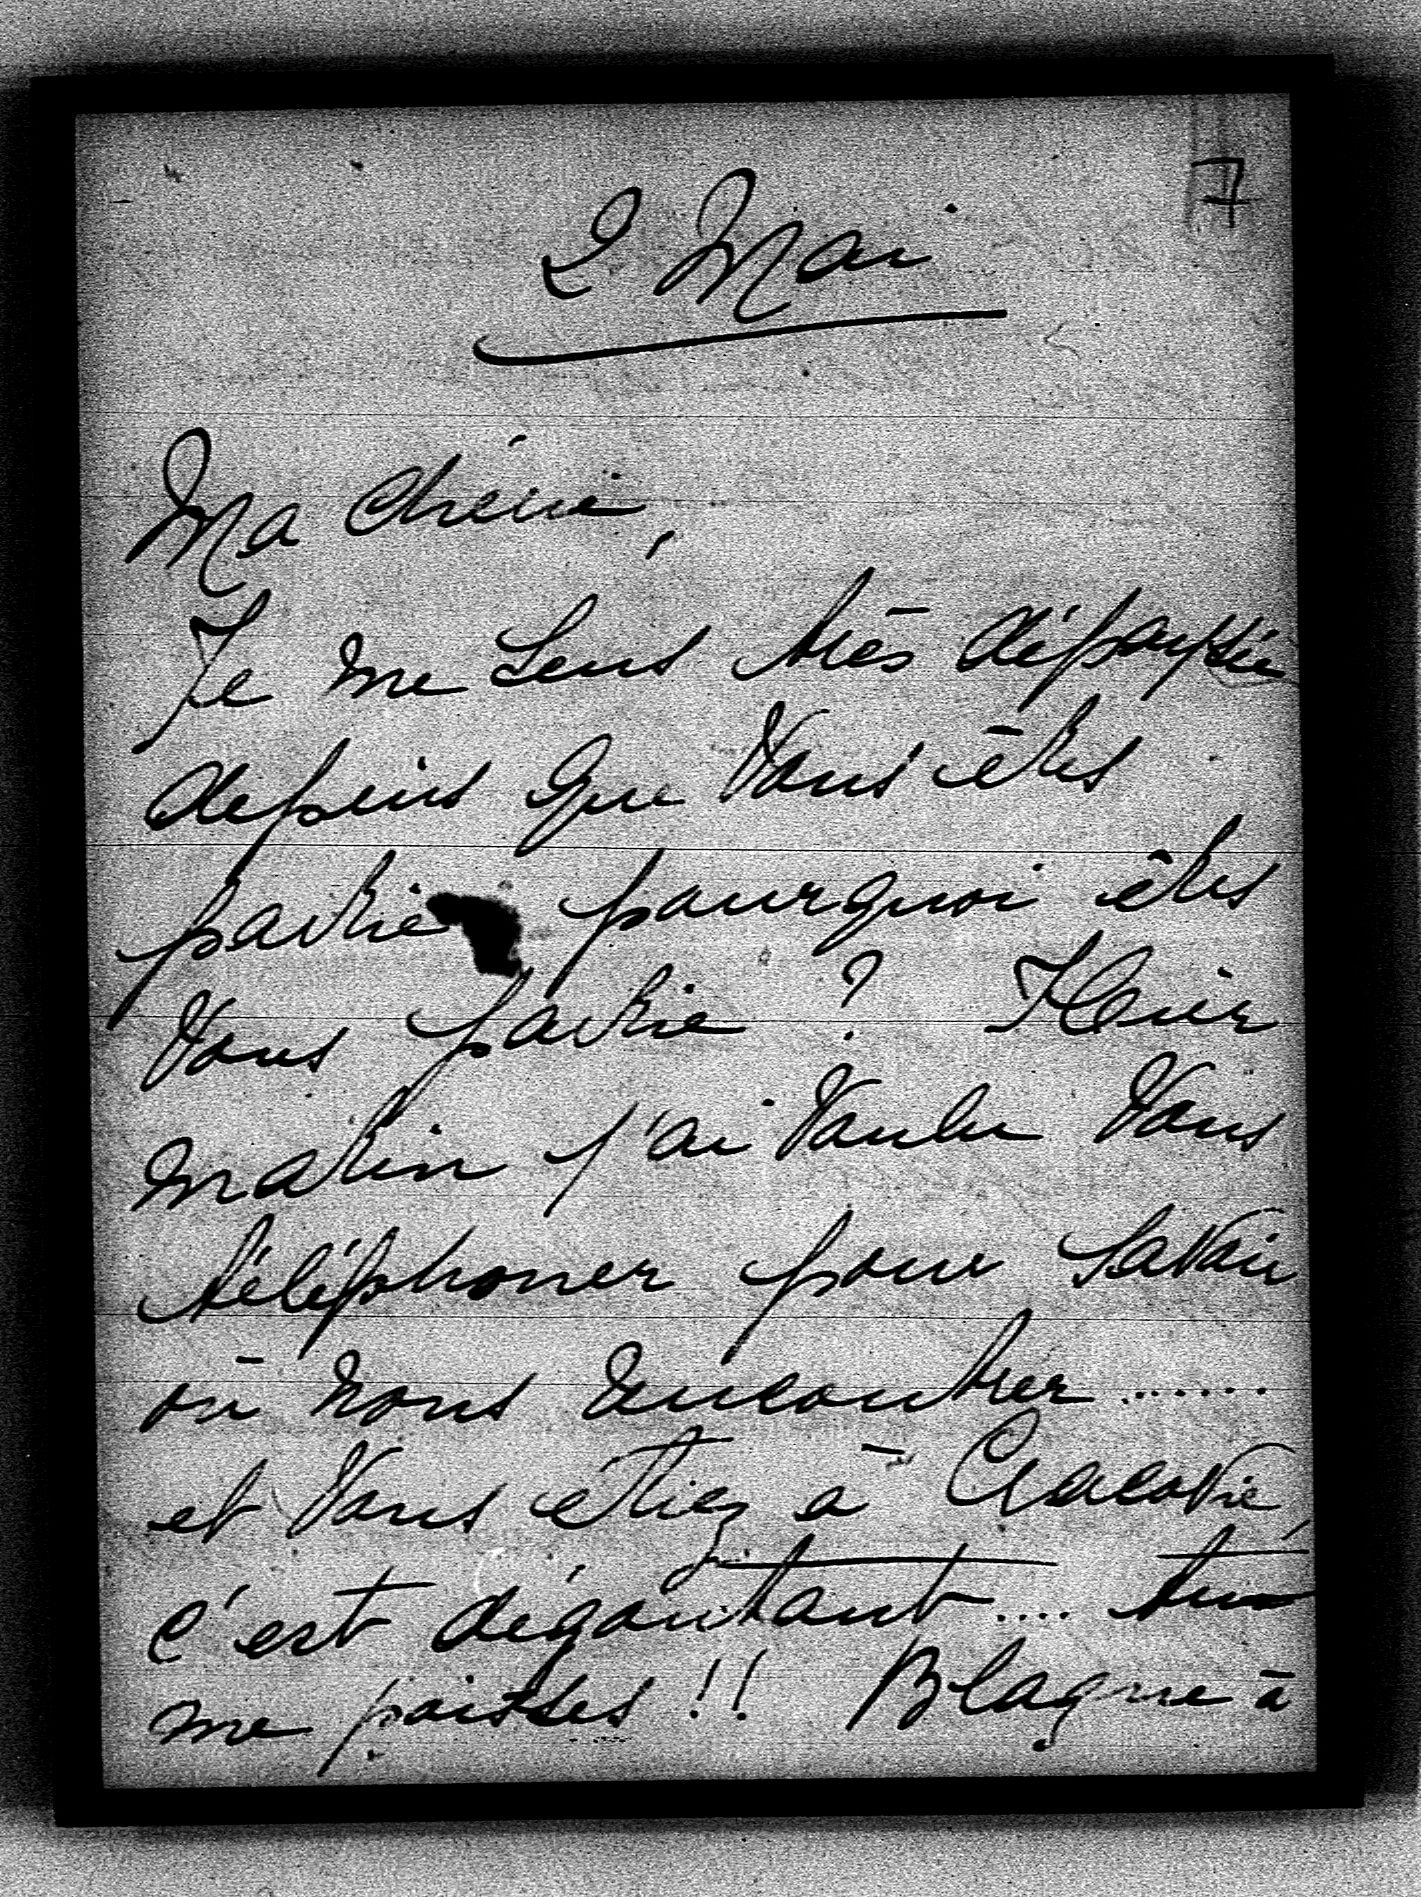 7
2 Mai
Ma Chérie,
Je me sens très dépaysée
depuis que vous êtes
partie pourquoi êtes
vous partie ? Hier
matin j'ai voulu vous
téléphoner pour savoir
où nous rencontrer ......
et vous étiez à Cracovie,
c'est dégoûtant .... tu
me poisses !! Blague à